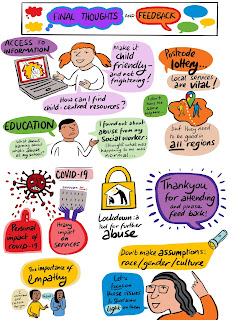 FINAL THOUGHTS AND FEEDBACK
ACCESS TO
INFORMATION
Make it
child
friendly -
and not
frightening!
How can I find
child centred resources?
Postcode
lottery...
Local services
are vital!
EDUCATION
I found out about
abuse from my
social worker.
I thought what was
happening to me was
normal...
but they need
to be good in
all regions
COVID-19
Personal
impact of
COVID-19
Heavy
impact on
services
Lockdown: a
tool for further
abuse
Thank you
for attending
and please
feed back!
Don't make assumptions:
race/gender/culture
The importance of
Empathy
Let's
these issues
light on them